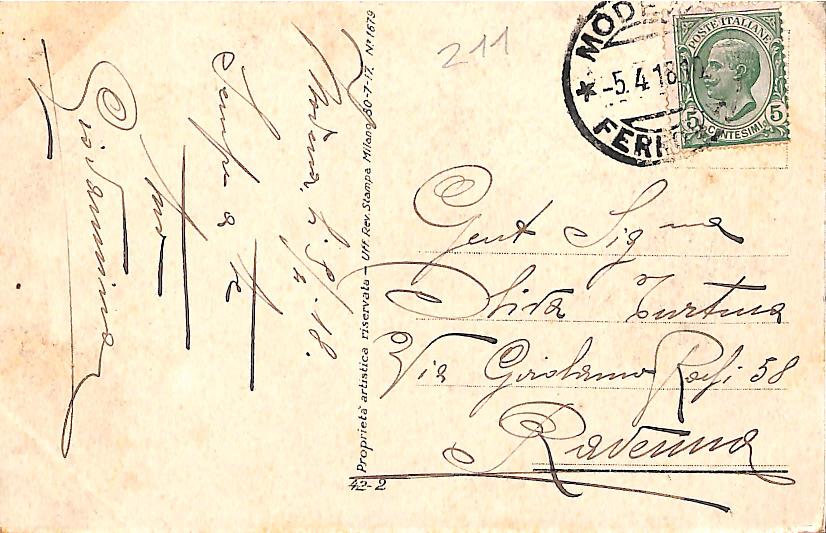 211
MODENA
* -5.4.18.
FERROVIA
POSTE ITALIANE
5 CENTESIMI 5
Modena, li 5/4.18.
Sempre a te
Giovannina
Proprietà artistica riservata - Uff. Rev. Stampa Milano 30-7-17. N° 1679
42-2
Gent Sig na
Oliva
Via Girolamo Rossi 58
Ravenna